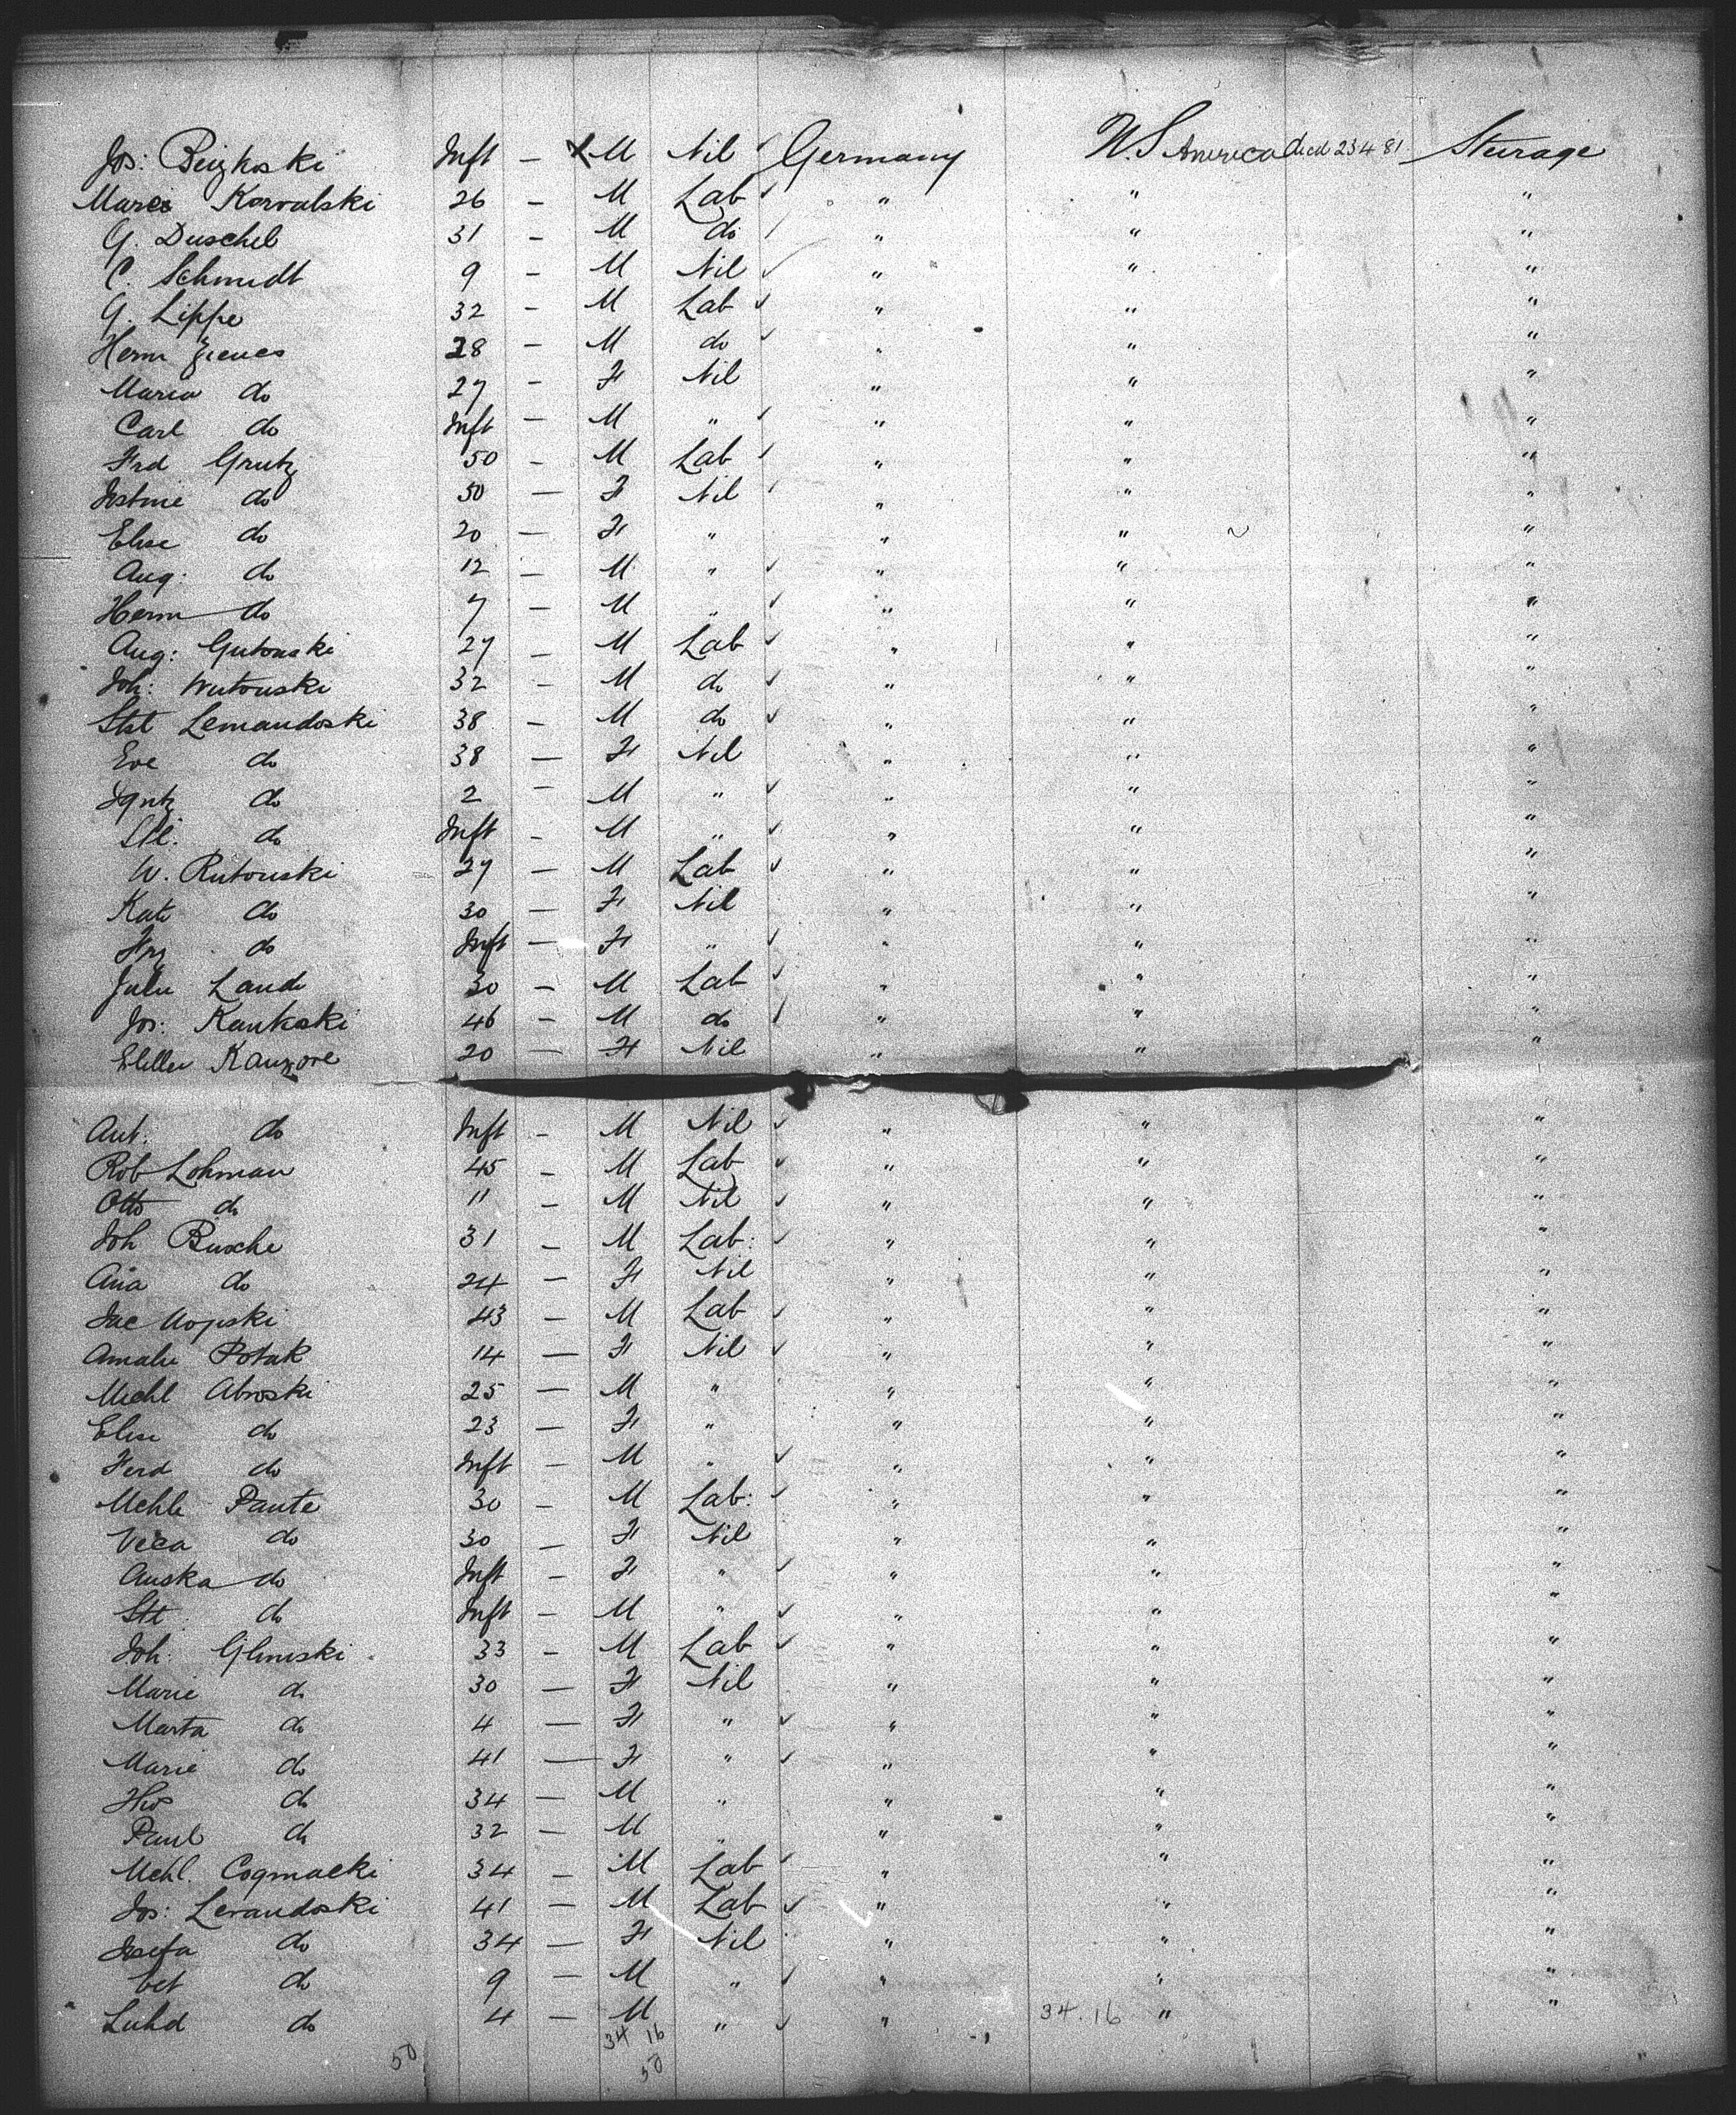 Jos: Beizkoski Inft — X M Nil ✓ Germany U.S America died 23 4 81 Sturage
Marci Korvalski 26 — M Lab ✓ " " "
G. Duschel 31 — M do / " " "
C. Schmidt 9 — M Nil ✓ " " "
G. Lippe 32 — M Lab ✓ " " "
Herm Zienes 28 — M do ✓ " " "
Maria do 27 — F Nil " " "
Carl do Inft — M " ✓ " " "
Frd Grutz 50 — M Lab ✓ " " "
Justine do 50 — F Nil " " "
Elise do 20 — F " " " "
Aug: do 12 — M " ✓ " " "
Herm do 7 — M " ✓ " " "
Aug: Gutowski 27 — M Lab ✓ " " "
Joh: Wutouski 32 — M do ✓ " " "
Stst Lemandoski 38 — M do ✓ " " "
Eve do 38 — F Nil " " "
Igntz do 2 — M " ✓ " " "
Stl. do Inft — M " ✓ " " "
W. Rutouski 27 — M Lab ✓ " " "
Kate do 30 — F Nil " " "
Frz do Inft — F " ✓ " " "
Julu Lande 30 — M Lab ✓ " " "
Jos: Kankoski 46 — M do / " " "
Kanzore 20 — F Nil " " "
Ant. do Inft — M Nil ✓ " " "
Rob Lohman 45 — M Lab ✓ " " "
Otto do 11 — M Nil ✓ " " "
Joh Busche 31 — M Lab: ✓ " " "
Ana do 24 — F Nil " " "
Jac 43 — M Lab ✓ " " "
Amalie Potak 14 — F Nil ✓ " " "
Mechl Abroski 25 — M " " " "
Elise do 23 — F " " " "
Ferd do Inft — M " ✓ " " "
Mchle Pante 30 — M Lab: ✓ " " "
Veca do 30 — F Nil " " "
Auska do Inft — F " ✓ " " "
Stt. do Inft — M " ✓ " " "
Joh: Glinuski 33 — M Lab ✓ " " "
Marie do 30 — F Nil " " "
Marta do 4 — F " ✓ " " "
Marie do 41 — F " ✓ " " "
do 34 — M " " " "
Paul do 32 — M " " " "
Mchl. Cogmacki 34 — M Lab ✓ " " "
Jos: Levandoski 41 — M Lab ✓ " " "
Josefa do 34 — F Nil " " "
do 9 — M " ✓ " " "
Luhd do 4 — M " ✓ " 34.16 " "
34 16
50 50